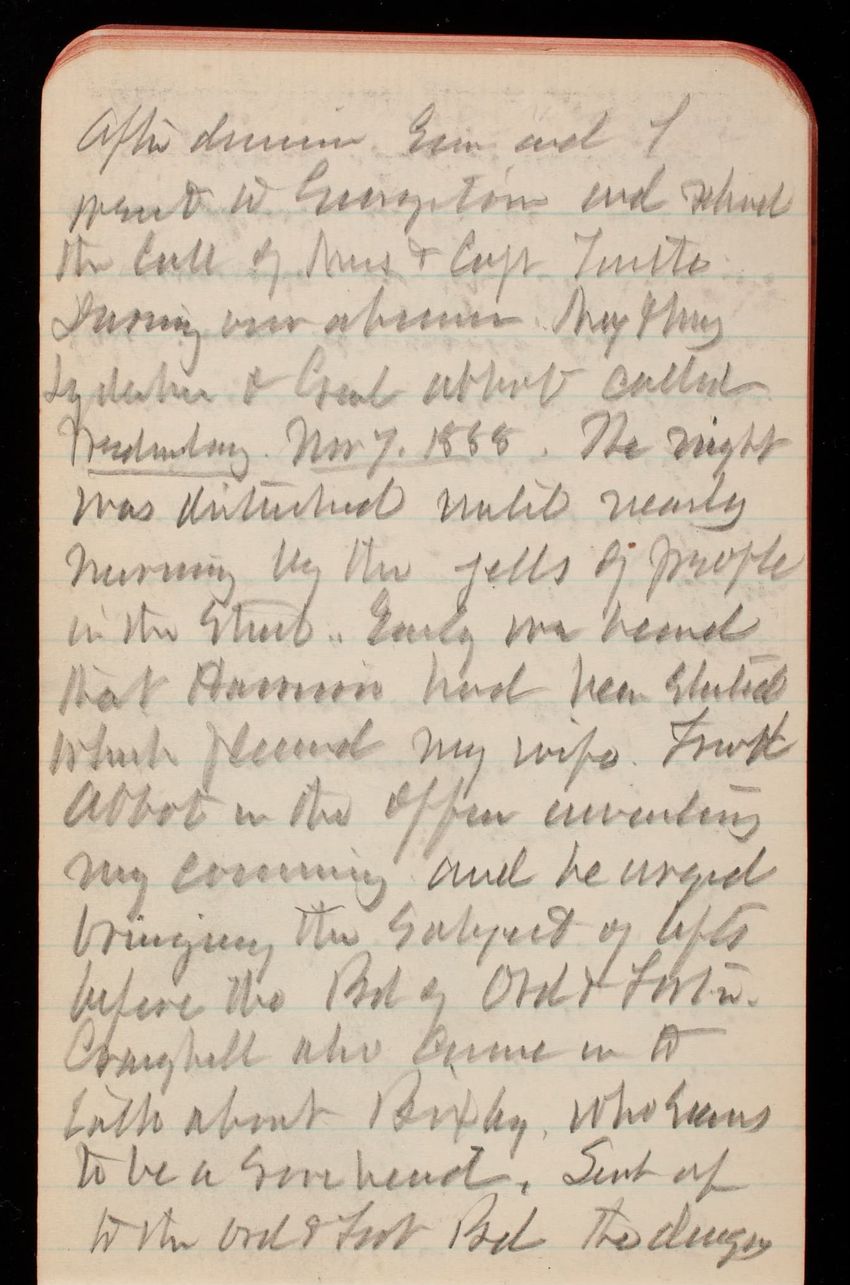 After dinner Em and I
went to Georgetown and returned
the call of Mrs & Capt Tuttle
During our absence Maj & Mrs
Lydecker & Genl Abbot called
Wednesday. Nov 7. 1888. The night
was disturbed until nearly
morning by the yells of people
in the Street. Early we heard
that Harrison had been Elected
which pleased my wife. Found
Abbot in the Office awaiting
my coming and he urged
bringing the Subject of lifts
before the Bd of Ord & Fortn.
Craighill also came in to
talk about Bixby, who seems
to be a Sore head. Sent up
to the Ord & Fort Bd the